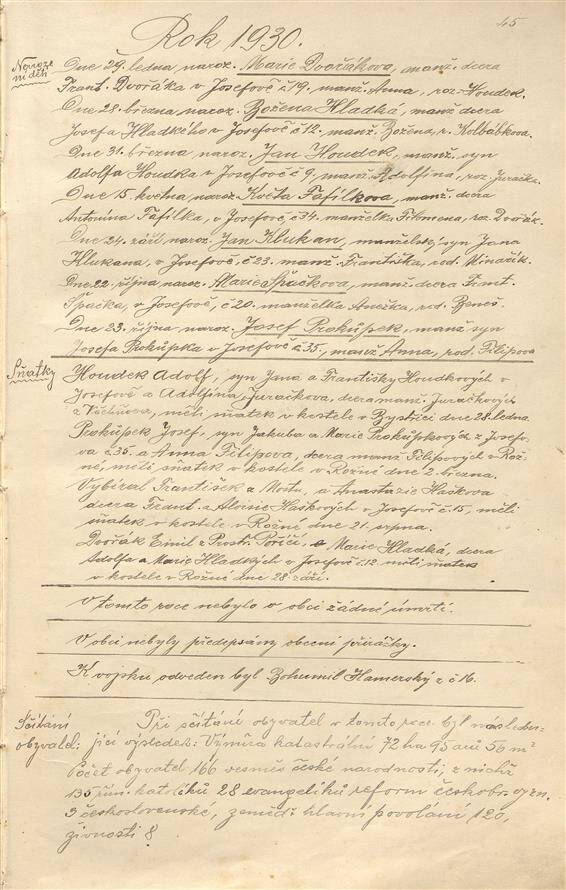 45
Rok 1930.
Naroze
ní dětí
Dne 29. ledna naroz. Marie Dvořákova, manž. dcera
Frant. Dvořáka v Josefově č 19, manž. Anna, roz. Houdek.
Dne 28. března naroz. Božena Hladká, manž dcera
Josefa Hladkého v Josefově č 12. manž. Božena, r. Kolbábkova.
Dne 31. března naroz. Jan Houdek, manž. syn
Adolfa Houdka v Josefově č 9, manž Adolfina, roz. Juračka.
Dne 15 května naroz. Květa Tafilkova, manž. dcera
Antonína Tafilka, v Josefově, č 34. manželka Filomena, roz. Dvořák.
Dne 24. září naroz. Jan Klukan, manželský syn Jana
Klukana, v Josefově, č 23. manž. Františka, rod.
Dne 22. října naroz. Marie Špačkova, manž. dcera Frant.
Špačka, v Josefově, č 20. manželka Anežka, rod. Beneš.
Dne 23. října naroz. Josef Prokůpek, manž syn
Josefa Prokůpka v Josefově č 35, manž Anna, rod. Filipova
Sňatky
Houdek Adolf, syn Jana a Františky Houdkových v
Josefově a Adolfina Juračkova, dcera manž. Juračkových
z Věchnova, měli sňatek v kostele v Bystřici dne 28. ledna.
Prokůpek Josef, syn Jakuba a Marie Prokůpkových z Josefo-
va č 35 a Anna Filipova, dcera manž Filipových v Rož-
né, měli sňatek v kostele v Rožné dne 2. března.
Vybíral František z Mostu, a Anastazie Haškova
dcera Frant. a Aloisie Haškových v Josefově č 15, měli
sňatek v kostele v Rožné dne 21. srpna.
Dvořák Emil z Prostr. Poříčí, a Marie Hladká, dcera
Adolfa a Marie Hladkých v Josefově č 12 měli sňatek
v kostele v Rožné dne 28. září.
V tomto roce nebylo v obci žádné úmrtí.
V obci nebyly předepsány obecní přirážky.
K vojsku odveden byl Bohumil Hamerský z č 16.
Sčítání
obyvatel:
Při sčítání obyvatel v tomto roce byl následu-
jící výsledek: Výměra katastrální 72 ha 95 arů 56 m²
Počet obyvatel 166 vesměs české narodnosti, z nichž
135 řím. katolíků 28 evangelíků reform českobr. vyzn.
3 československé, zeměd: hlavní povolání 120,
živnosti 8